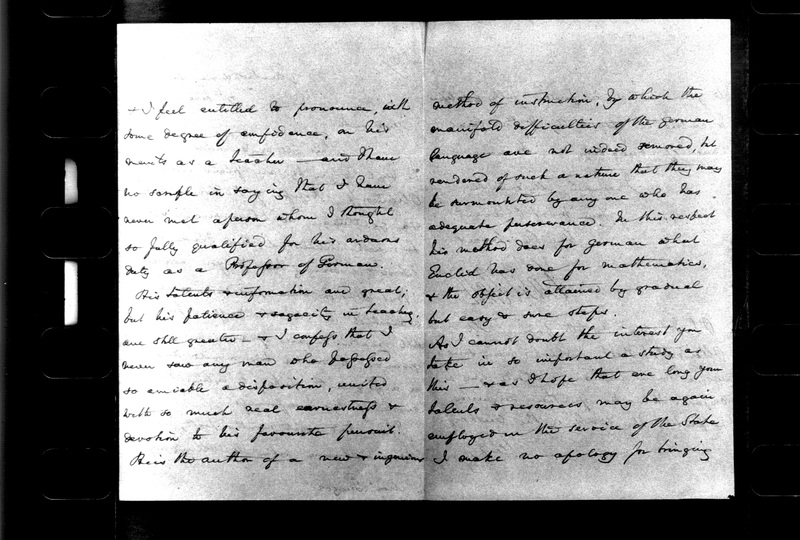 & I feel entitled to pronounce, with
some degree of confidence, on his
merits as a teacher — and I have
no scruple in saying that I have
never met a person whom I thought
so fully qualified for his arduous
duty as a Professor of German.
His talents & information are great;
but his patience & sagacity in teaching,
are still greater — & I confess that I
never saw any man who possessed
so amiable a disposition, united
with so much real earnestness &
devotion to his favourite pursuit.
He is the author of a new & ingenious
method of instruction, by which the
manifold difficulties of the german
language are not indeed removed, but
rendered of such a nature that they may
be surmounted by any one who has
adequate perseverance. In this respect
his method does for german what
Euclid has done for mathematics,
& the object is attained by gradual
but easy & sure steps.
As I cannot doubt the interest you
take in so important a study as
this — & as I hope that ere long your
talents & resources may be again
employed in the service of the State
I make no apology for bringing